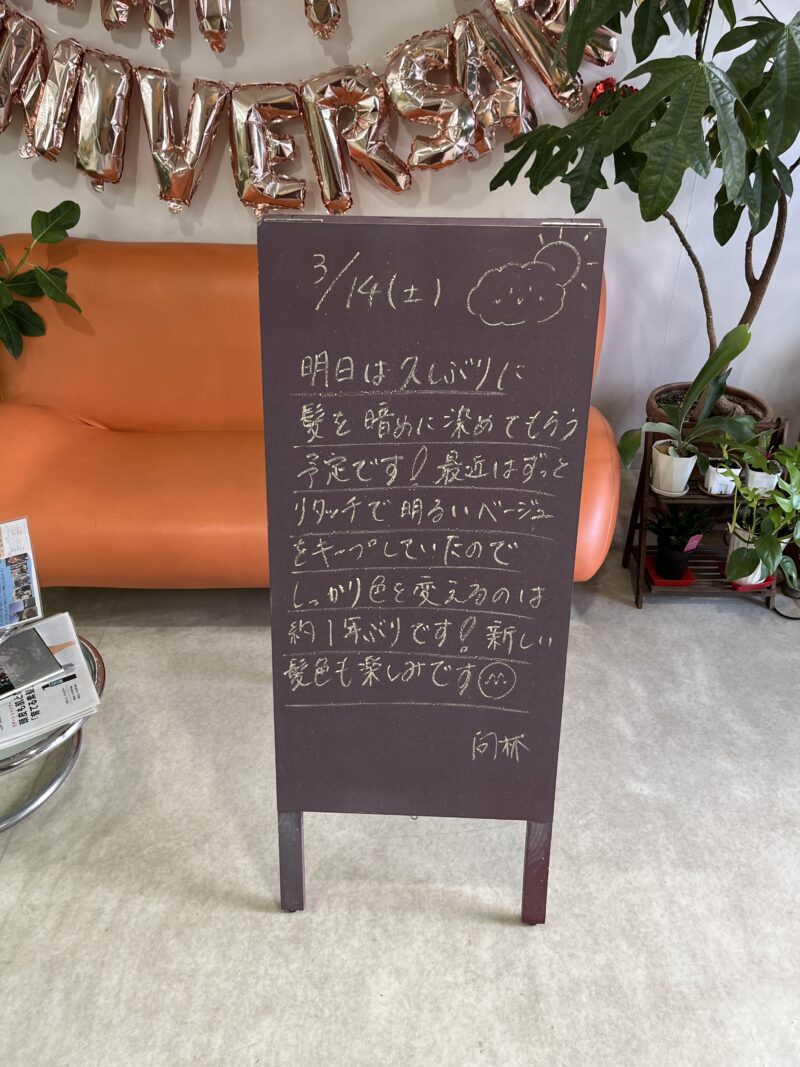 ANNIVERSARY
3/14(土)
明日は久しぶりに
髪を暗めに染めてもらう
予定です!最近はずっと
リタッチで明るいベージュ
をキープしていたので
しっかり色を変えるのは
約1年ぶりです!新しい
髪色も楽しみです